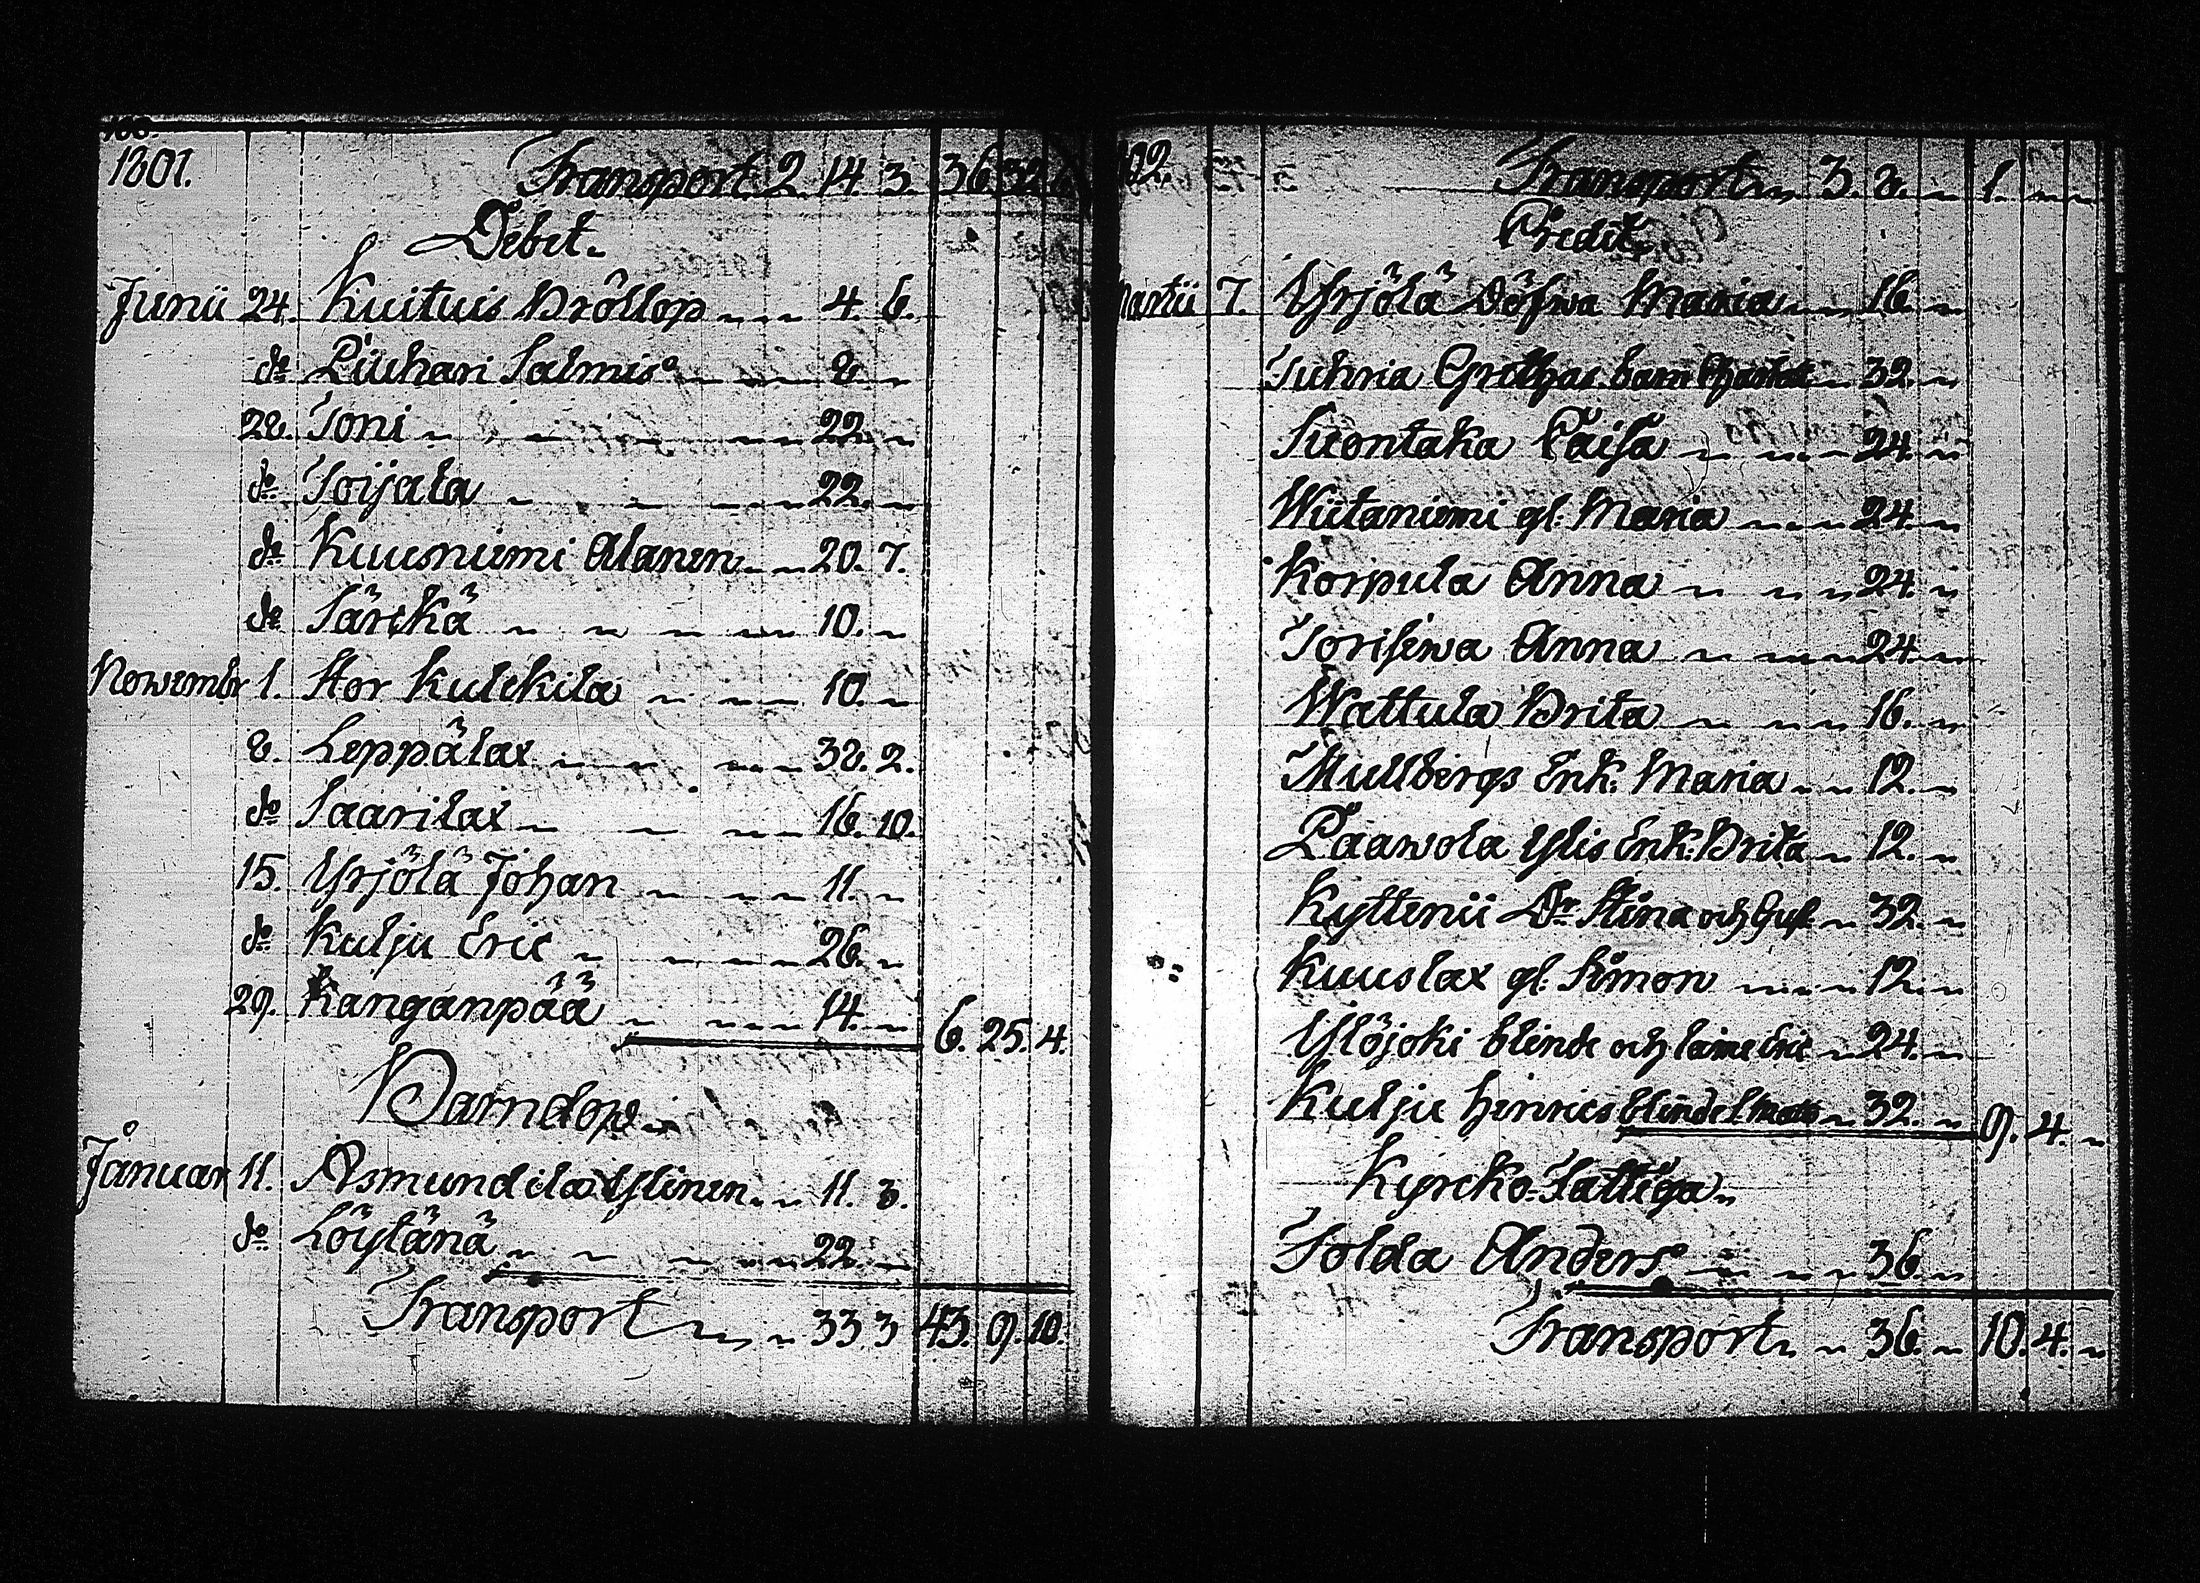 1801. Transport 2. 14. 3. 36. 32.
Debet.
Junii 24. Kuituis Bröllop 4. 6.
do Liuhari Salmis 8.
28. Toni 22.
do Toijala 22.
do Kuuniemi Alanen 20. 7.
do Särckä 10.
Novembr 1. Stor Kulckila 10.
8. Leppälax 38. 2.
do Saarilax 16. 10.
15. Yrjölä Johan 11.
do Kulju Eric 26.
29. Kanganpää 14. 6. 25. 4.
Barndop
Januar 11. Asmundila Ylinen 11. 3.
do Löytänä 22.
Transport 33. 3 43. 9. 10.
102. Transport 3. 8. 1.
Credit.
Martii 7. Yrjölä Döfwa Maria 16.
Juhria Grethas barn 32.
Suontaka Caisa 24.
Wiitaniemi gl. Maria 24.
Korpula Anna 24.
Torisewa Anna 24.
Wattula Brita 16.
Mullbergs Enk. Maria 12.
Paawola Ylis Enk. Brita 12.
Kyttenii Dr Stina och Gust 32.
Kuuslax gl. Simon 12.
Ylöjoki blinde och lame Eric 24.
Kulju Hinrics blinde Matts 32. 9. 4.
Kyrcko-Fattiga
Tolda Anders 36.
Transport 36. 10. 4.